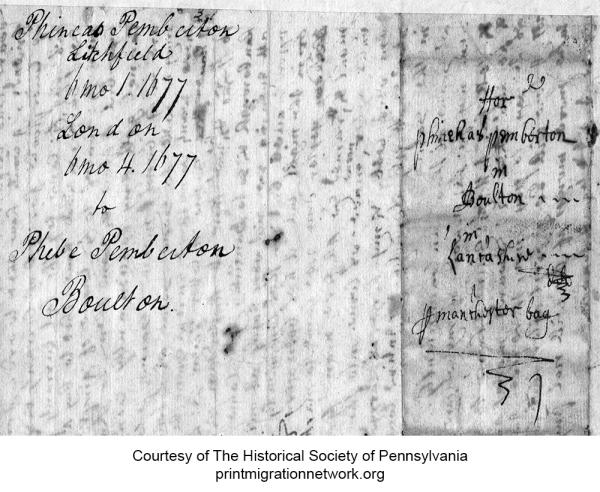 Phineas Pemberton
Lichfield
6mo 1. 1677
London
6mo 4. 1677
to
Phebe Pemberton
Boulton.
ffor
phinehas pemberton
in
Boulton
in
Lancashire
manchester bag
Courtesy of The Historical Society of Pennsylvania
printmigrationnetwork.org